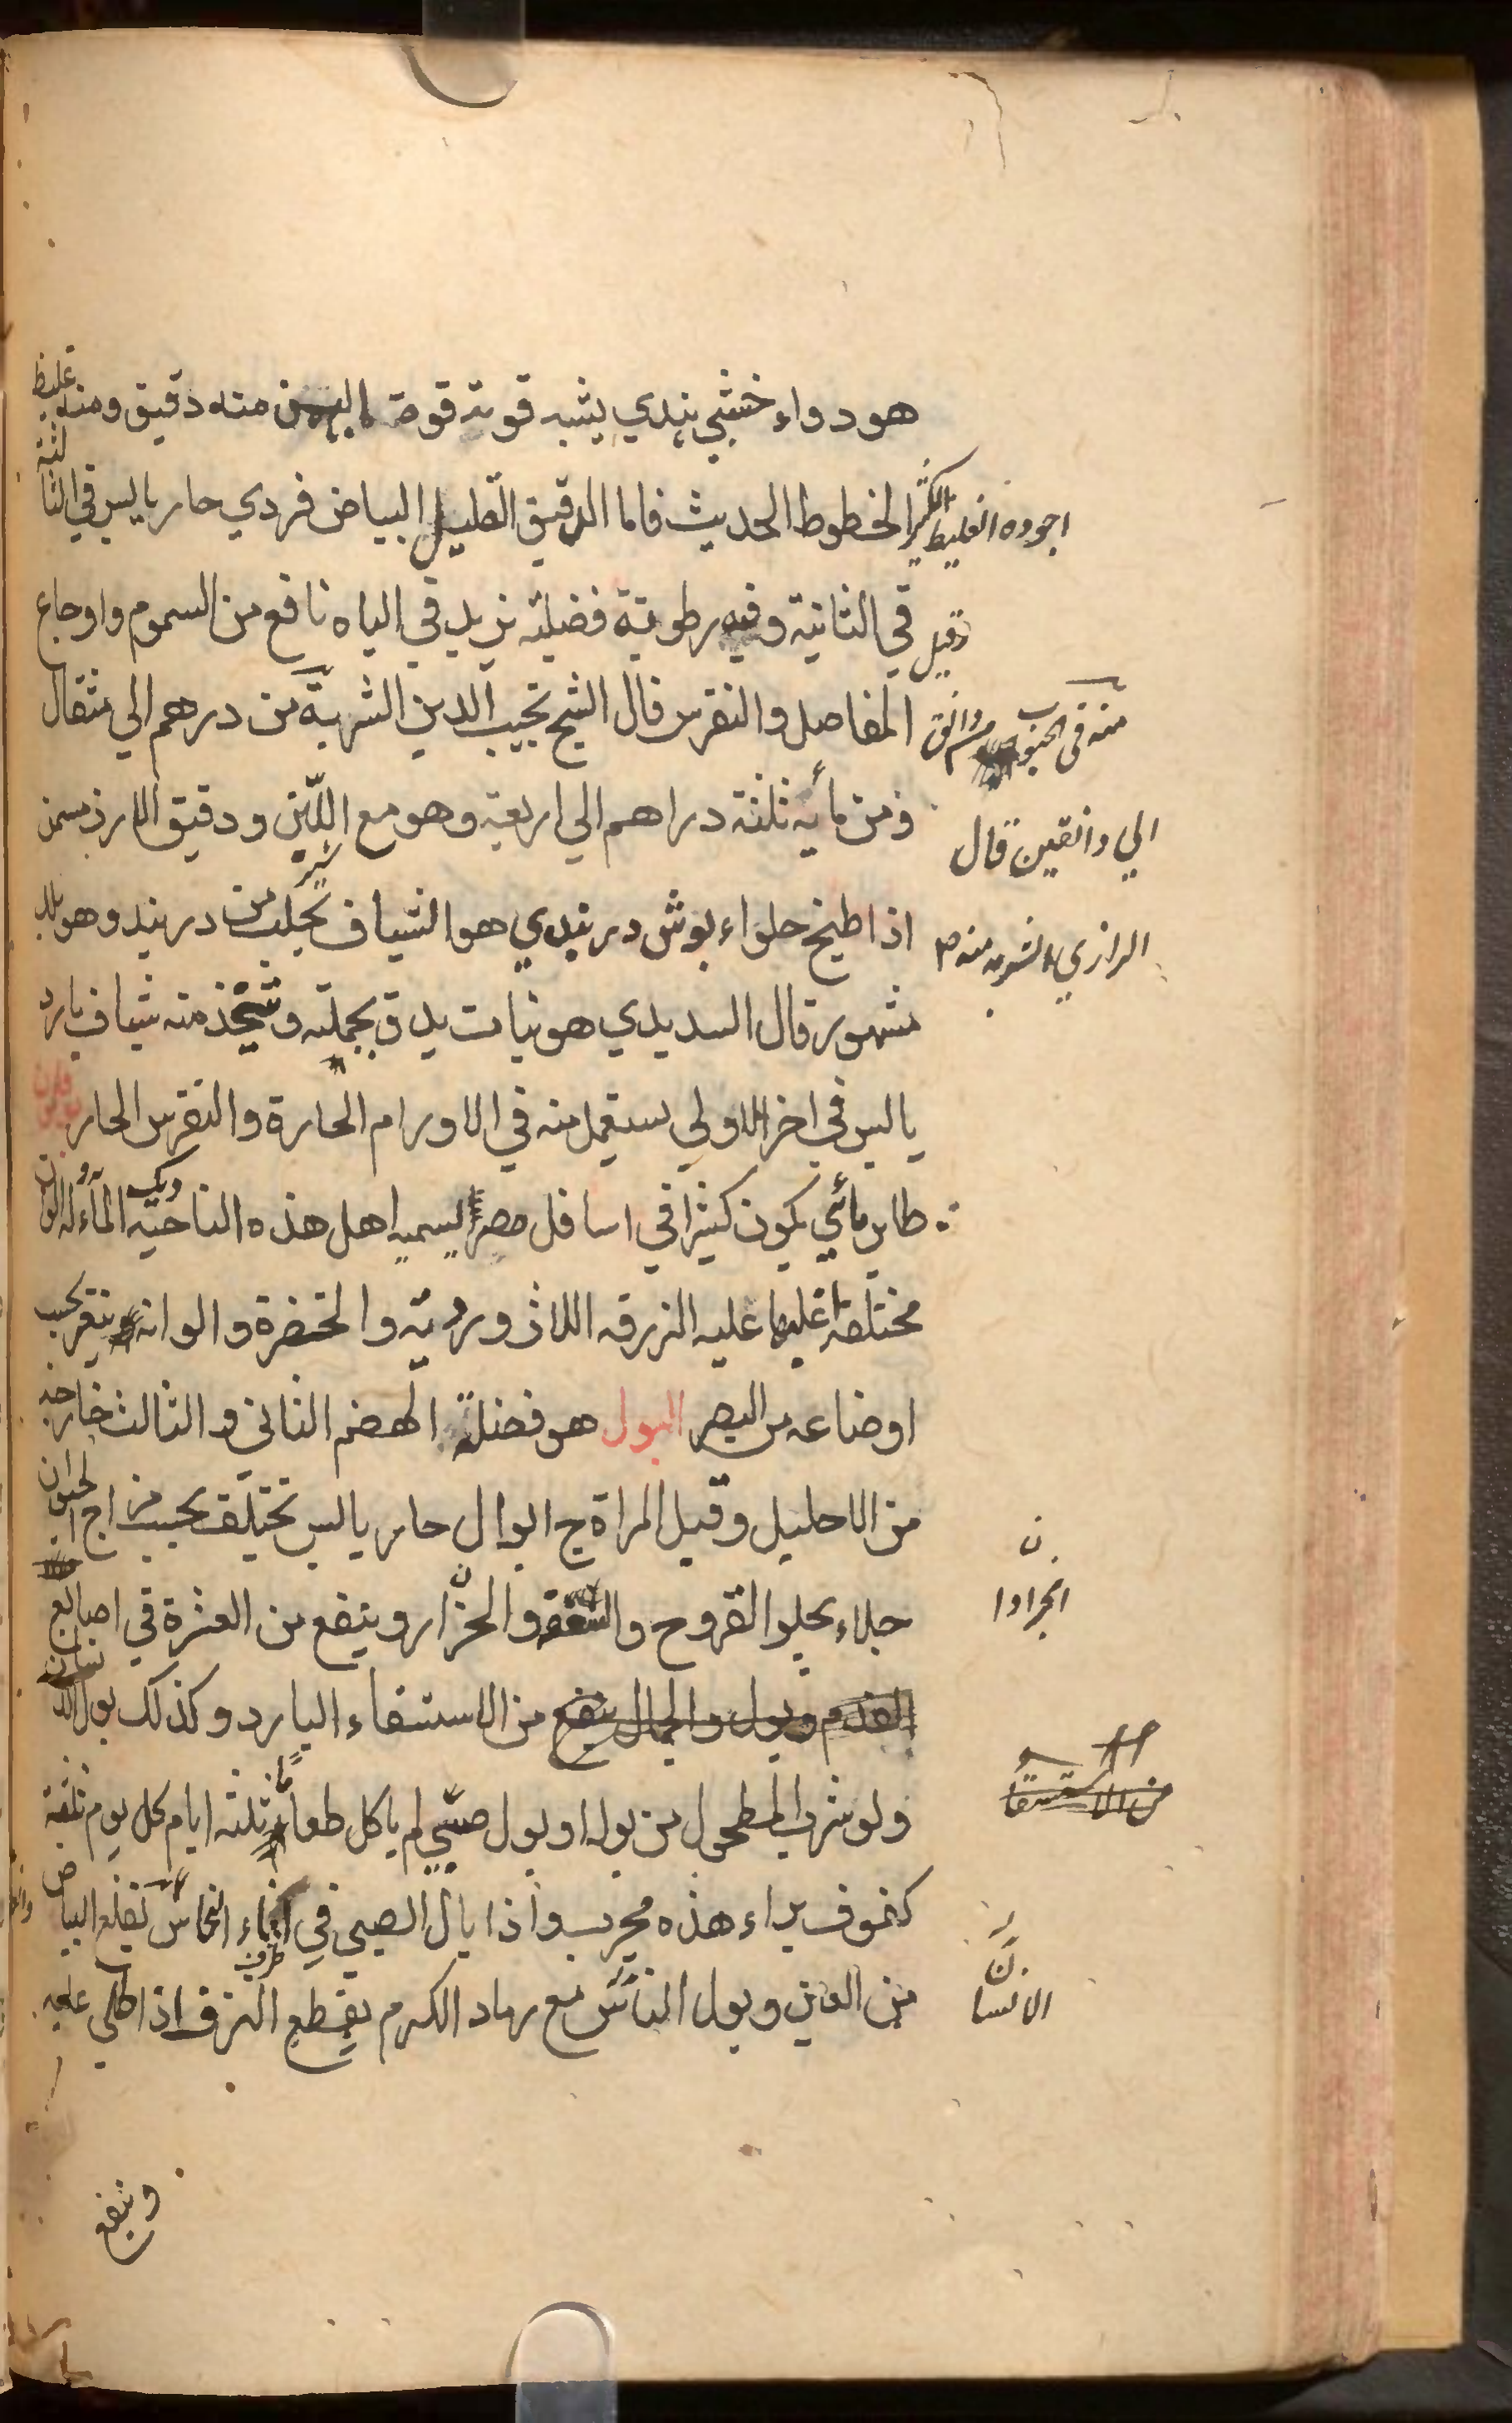 هو دواء خشبي بندي يشبه قوته قوة البهمن منه دقيق ومنه غليظ
اجوده الغليظ الكثير الخطوط الحديث فاما الدقيق القليل البياض فردي حار يابس في الثالثة
وقيل في الثانية وفيه رطوبة فضلية يزيد في الباه نافع من السموم واوجاع
المفاصل والنقرس قال الشيخ نجيب الدين الشربة من درهم الي مثقال
منه في الحبوب من دانق
ومن مأيه ثلثة دراهم الي اربعة وهو مع اللبن ودقيق الارز سمن
الي دانقين قال
اذا طبخ حلواء بوش دربندي هو الشياف يجلب من دربند وهو بلد
الرازي الشربه منه م
مشهور قال السديدي هو نبات يدق بجملته ويتخذ منه شياف بارد
يابس في اخر الاولي يستعمل منه في الاورام الحارة والنقرس الحار
طاير مأئي يكون كثيرا في اسافل مصر يسميه اهل هذه الناحية ديك الماء له الوان
مختلفه اغلبها عليه الزرقه اللاذوردية والخضرة والوانه يتغير بحسب
اوضاعه من البصر البول هو فضلة الهضم الثاني والثالث خارجه
من الاحليل وقيل المراة ج ابوال حار يابس تختلف بحسب مزاج الحيوان
جلاء يجلو القروح والسعفه والحزاز وينفع من العثرة في اصابع
ن
انجرادا
القدم وبول والجمال ينفع من الاستسقاء البارد وكذلك بول
من الاستسقا
ولو شرب المطحول من بوله او بول صبي لم ياكل طعاما ثلثه ايام كل يوم ثلثة
كفوف براء هذه مجرب واذا بال الصبي في اناء النحاس يقلع البياض
من العين وبول الناس مع رماد الكرم يقطع النزف اذا طلي عليه
الانسا
وينفع